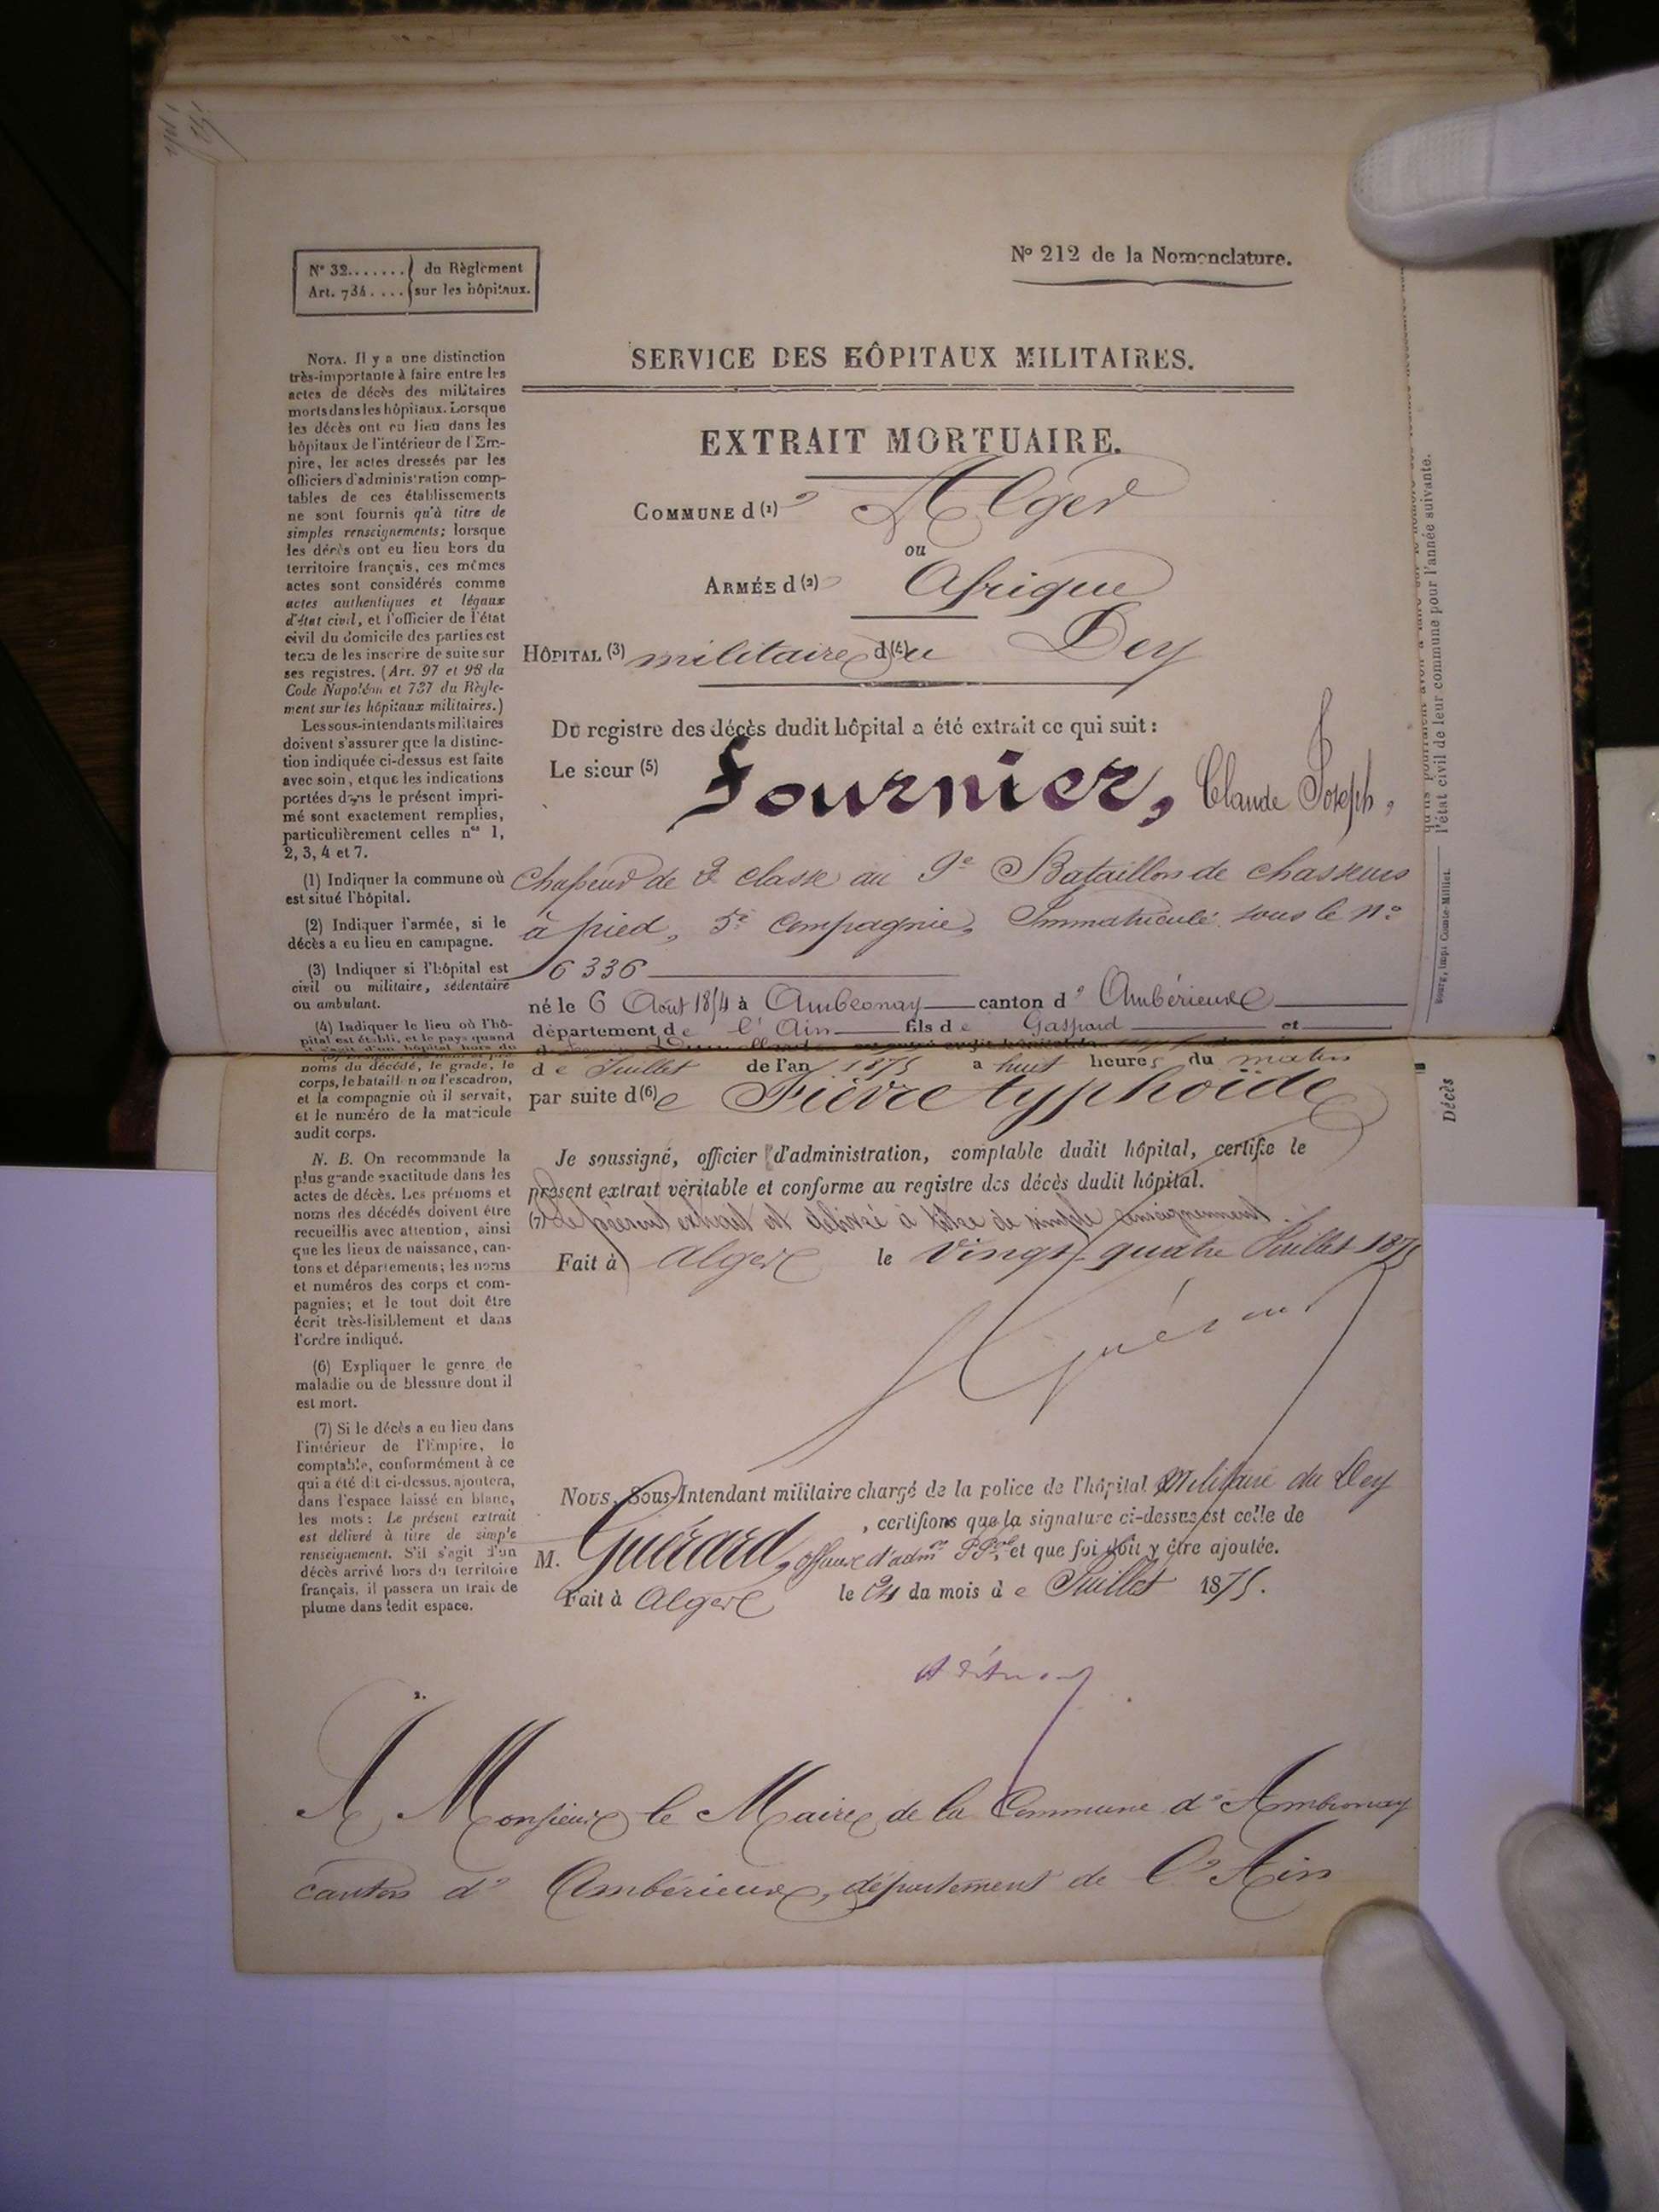 N° 32....... du Règlement
Art. 734.... sur les hôpitaux.
N° 212 de la Nomenclature.
SERVICE DES HÔPITAUX MILITAIRES.
EXTRAIT MORTUAIRE.
COMMUNE d (1) 'Alger
ou
ARMÉE d (2) 'Afrique
HÔPITAL (3) militaire d(4)u Dey
Du registre des décès dudit hôpital a été extrait ce qui suit :
Le sieur (5) Fournier, Claude Joseph,
Chasseur de 2e classe au 9e Bataillon de chasseurs
à pied, 5e Compagnie, Immatriculé sous le n°
6336
né le 6 Août 1854 à Ambronay canton d' Ambérieux
département de l'Ain fils de Gaspard et
de Juillet de l'an 1875 a huit heures du matin
par suite d(6)e Fièvre typhoïde
Je soussigné, officier d'administration, comptable dudit hôpital, certifie le
présent extrait véritable et conforme au registre des décès dudit hôpital.
(7) Le présent extrait est délivré à titre de simple renseignement.
Fait à Alger le vingt-quatre Juillet 1875
Guérard
Nous, Sous-Intendant militaire chargé de la police de l'hôpital Militaire du Dey
, certifions que la signature ci-dessus est celle de
M. Guérard, officier d'admon Ppal, et que foi doit y être ajoutée.
Fait à Alger le 24 du mois de Juillet 1875.
A Monsieur le Maire de la Commune d'Ambronay
canton d'Ambérieux, département de l'Ain
NOTA. Il y a une distinction
très-importante à faire entre les
actes de décès des militaires
morts dans les hôpitaux. Lorsque
les décès ont eu lieu dans les
hôpitaux de l'intérieur de l'Em-
pire, les actes dressés par les
officiers d'administration comp-
tables de ces établissements
ne sont fournis qu'à titre de
simples renseignements; lorsque
les décès ont eu lieu hors du
territoire français, ces mêmes
actes sont considérés comme
actes authentiques et légaux
d'état civil, et l'officier de l'état
civil du domicile des parties est
tenu de les inscrire de suite sur
ses registres. (Art. 97 et 98 du
Code Napoléon et 737 du Règle-
ment sur les hôpitaux militaires.)
Les sous-intendants militaires
doivent s'assurer que la distinc-
tion indiquée ci-dessus est faite
avec soin, et que les indications
portées dans le présent impri-
mé sont exactement remplies,
particulièrement celles nos 1,
2, 3, 4 et 7.
(1) Indiquer la commune où
est situé l'hôpital.
(2) Indiquer l'armée, si le
décès a eu lieu en campagne.
(3) Indiquer si l'hôpital est
civil ou militaire, sédentaire
ou ambulant.
(4) Indiquer le lieu où l'hô-
pital est établi, et le pays quand
noms du décédé, le grade, le
corps, le bataillon ou l'escadron,
et la compagnie où il servait,
et le numéro de la matricule
audit corps.
N. B. On recommande la
plus grande exactitude dans les
actes de décès. Les prénoms et
noms des décédés doivent être
recueillis avec attention, ainsi
que les lieux de naissance, can-
tons et départements; les noms
et numéros des corps et com-
pagnies; et le tout doit être
écrit très-lisiblement et dans
l'ordre indiqué.
(6) Expliquer le genre de
maladie ou de blessure dont il
est mort.
(7) Si le décès a eu lieu dans
l'intérieur de l'Empire, le
comptable, conformément à ce
qui a été dit ci-dessus, ajoutera,
dans l'espace laissé en blanc,
les mots : Le présent extrait
est délivré à titre de simple
renseignement. S'il s'agit d'un
décès arrivé hors du territoire
français, il passera un trait de
plume dans ledit espace.
l'état civil de leur commune pour l'année suivante.
Bourg, imp. Comte-Milliet.
Décès